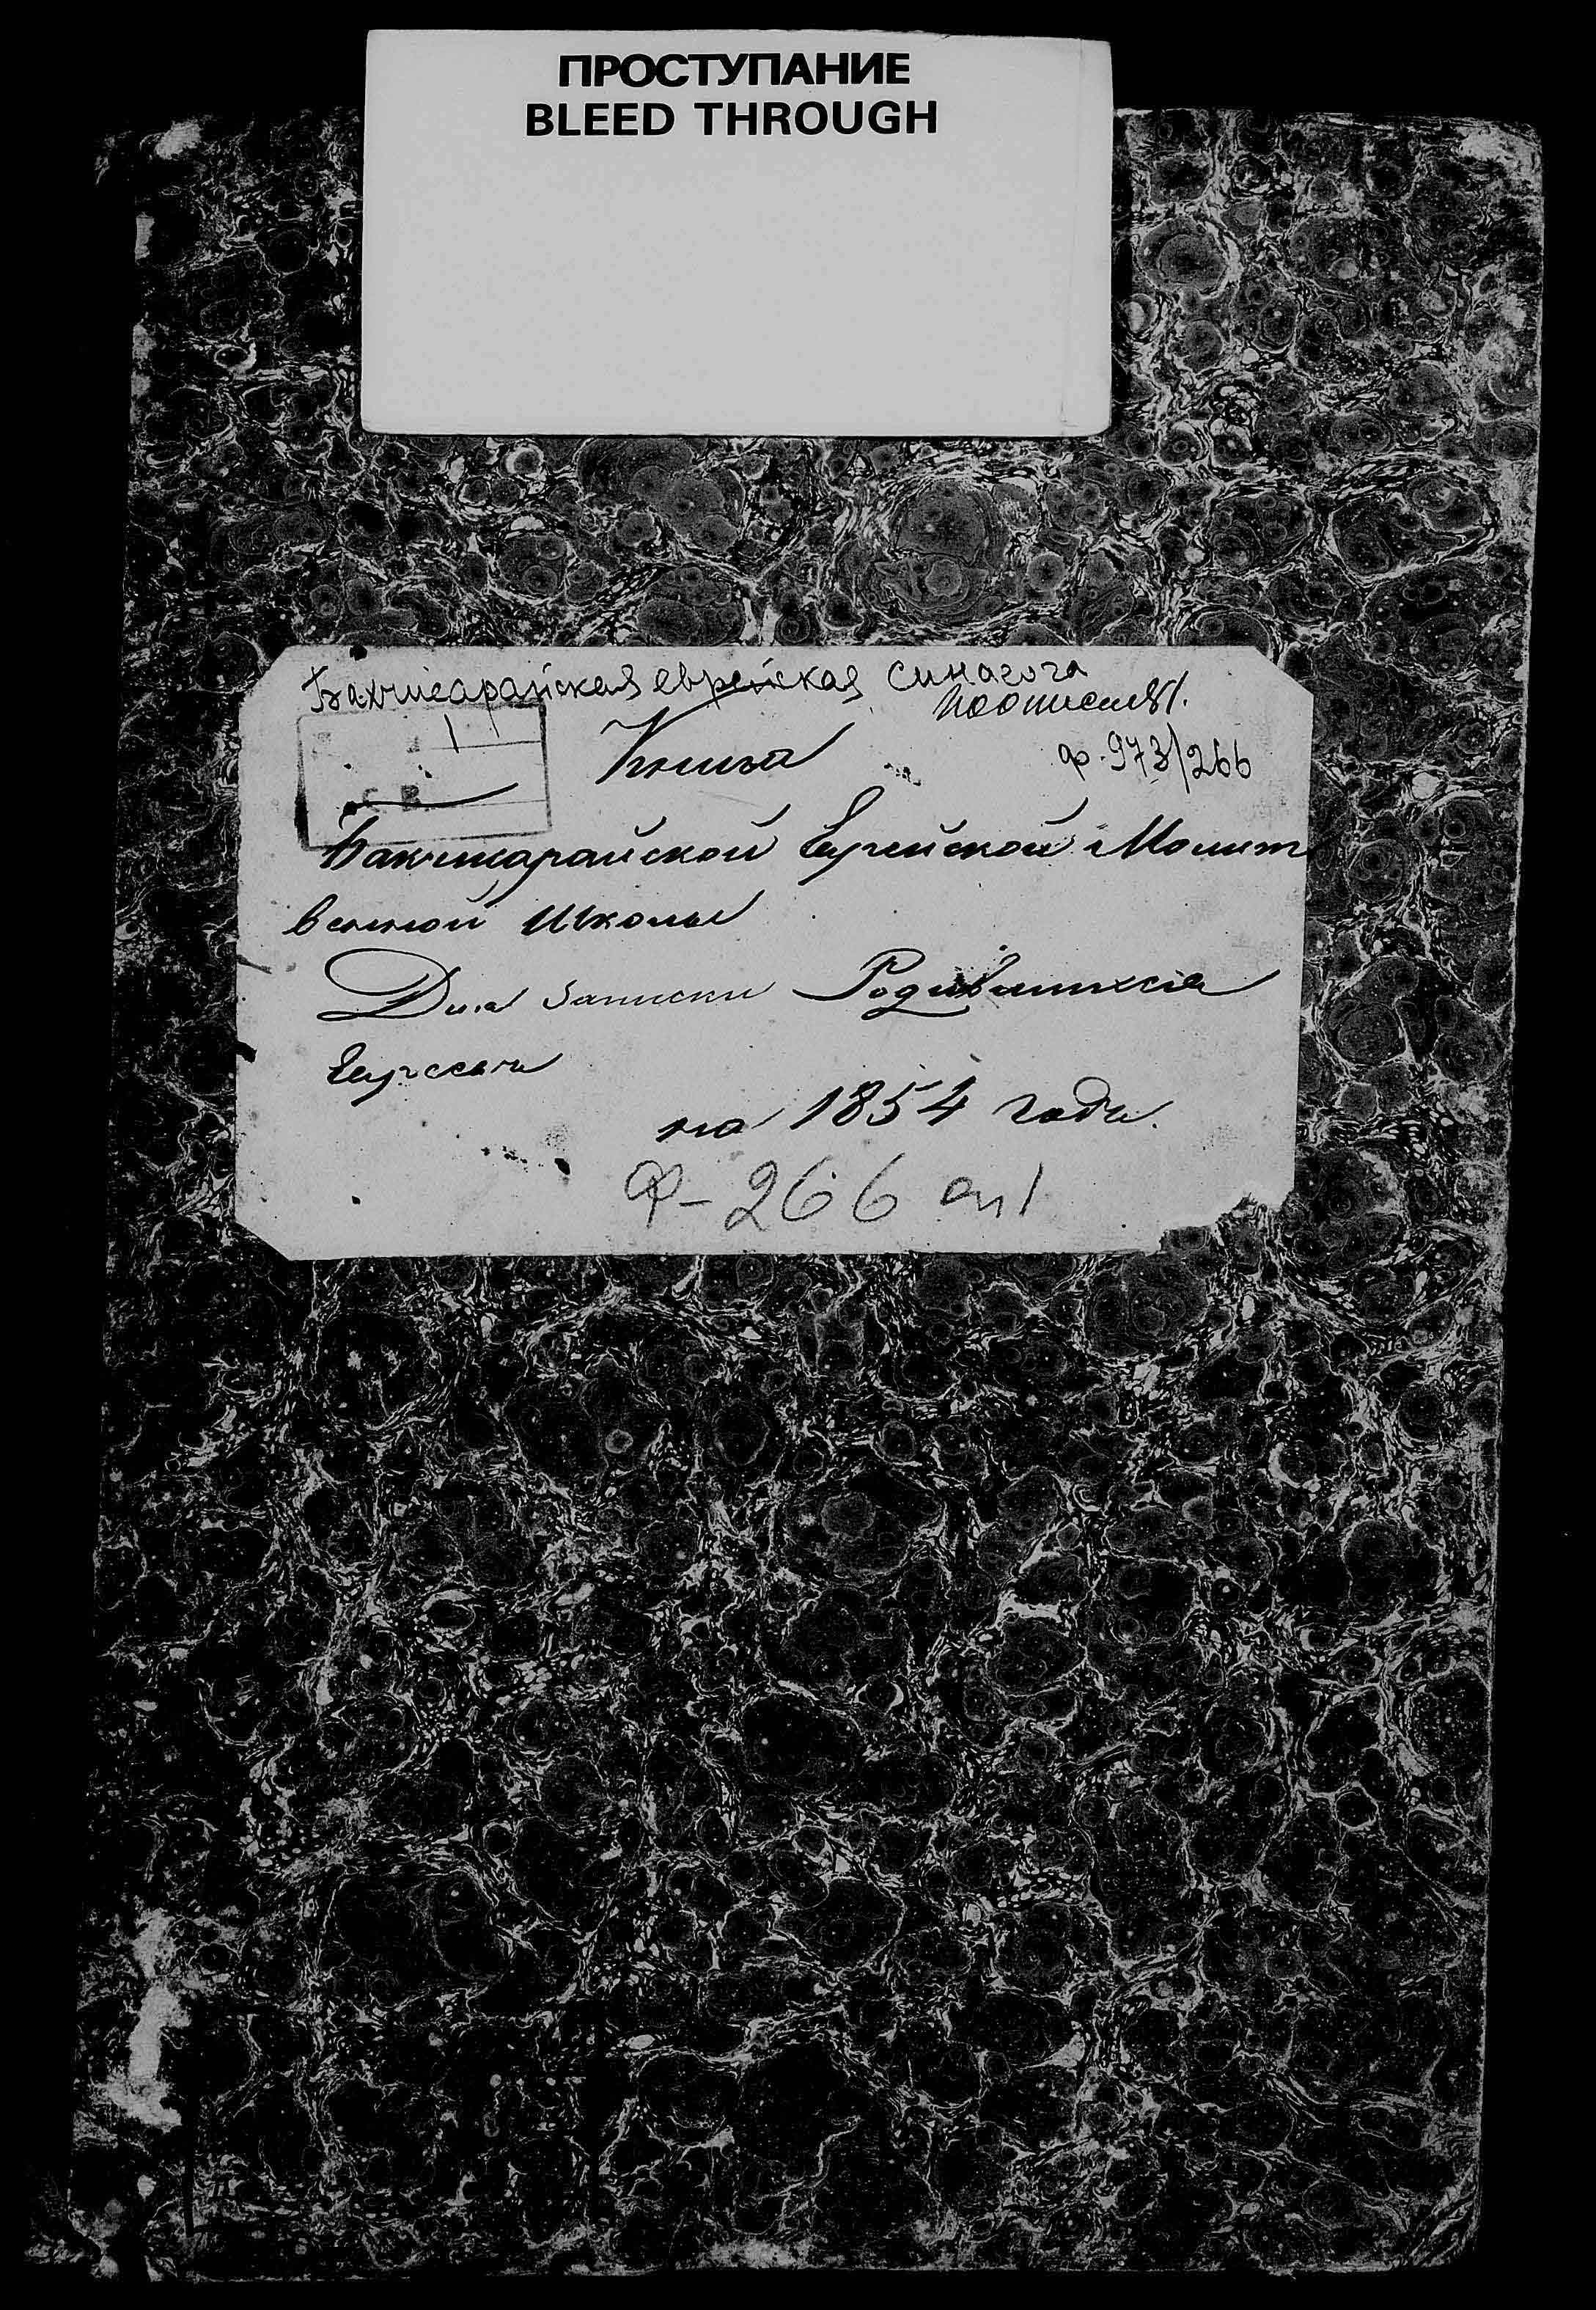 ПРОСТУПАНИЕ
BLEED THROUGH
Бахчисарайская еврейская синагога
по описи №1.
Книга
ф. 973/266
1
Бахчисарайской Еврейской Молит
венной Школы
Для записки Родившихся
Евреевъ
на 1854 годъ.
Ф-266 оп 1